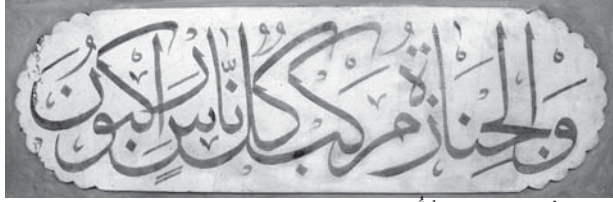 وَالْجِنَازَةُ مَرْكَبُ كُلُّ نَّاسٍ رَاكِبُونَ